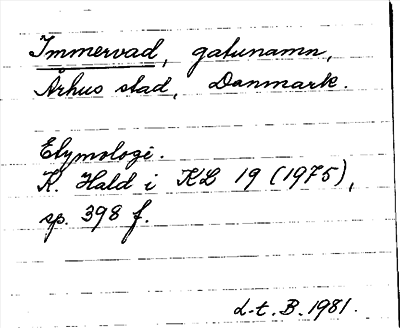 Immervad, gatunamn,
Århus stad, Danmark.
Etymologi.
K. Hald i KL 19 (1975),
sp. 398 f.
L-t. B. 1981.